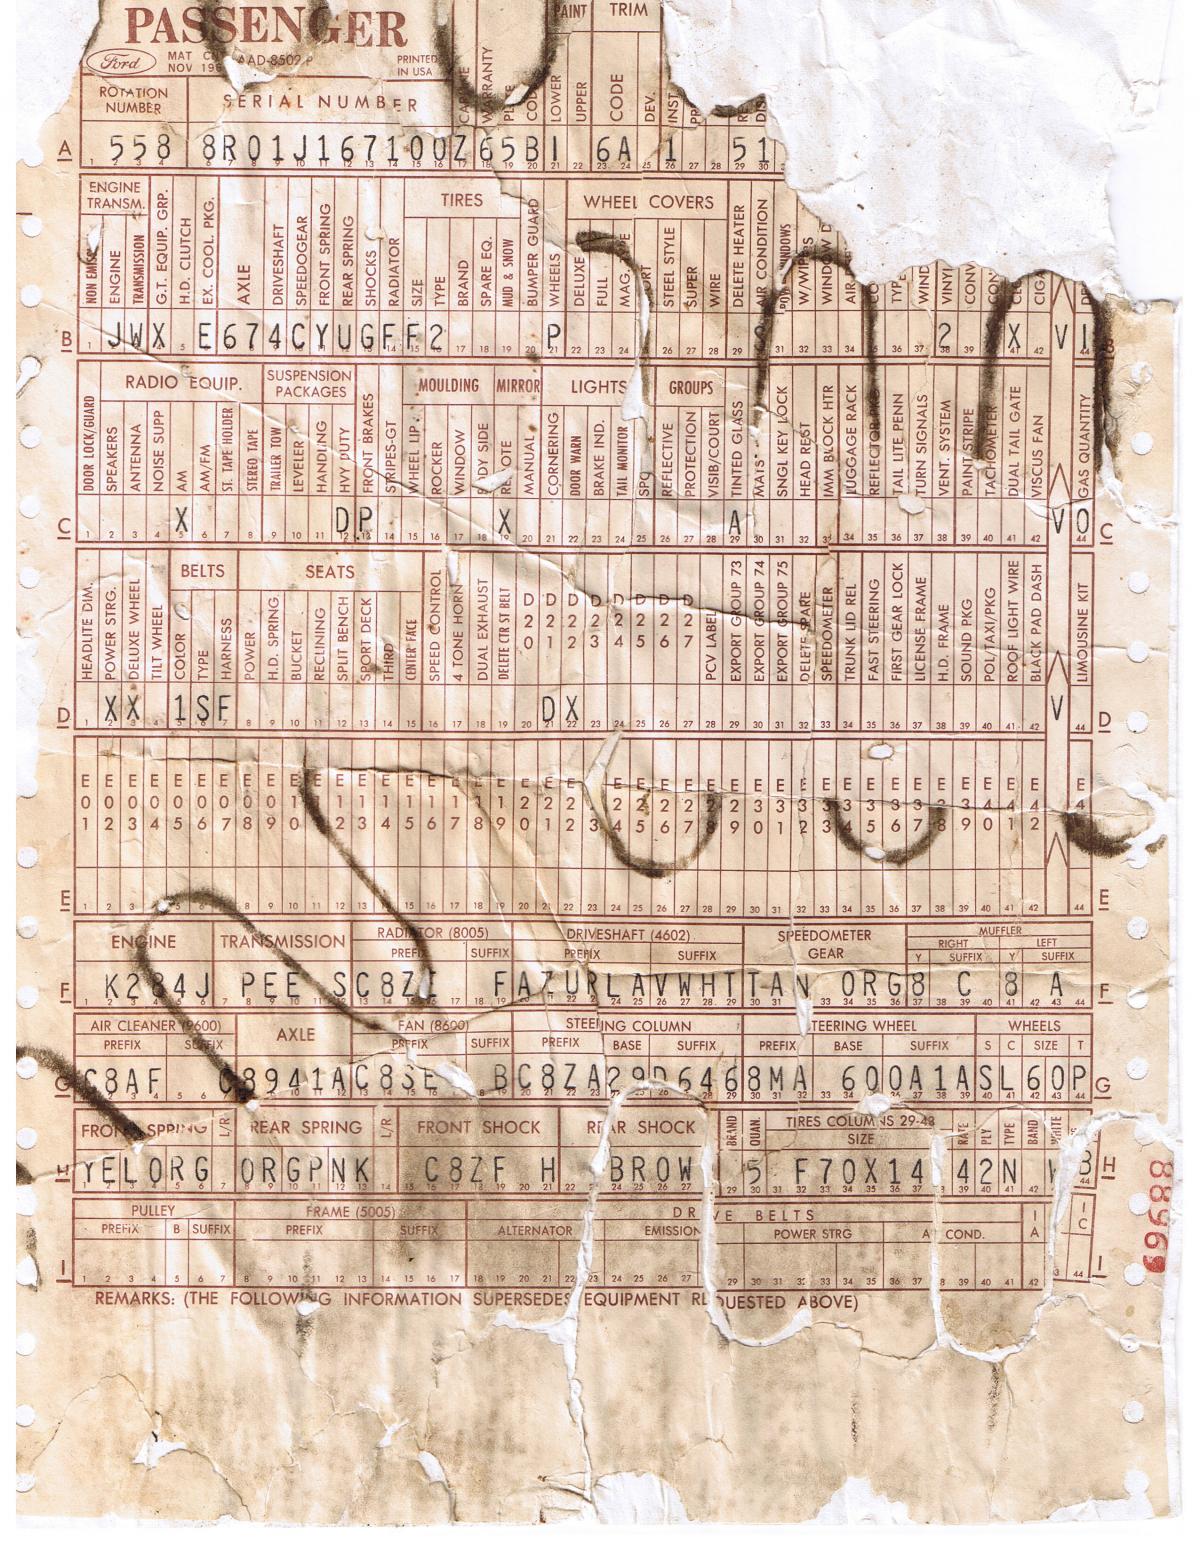 PASSENGER
Ford
MAT
NOV AAD-8502
PRINTED IN USA
PAINT TRIM
WARRANTY LOWER UPPER CODE DEV.
ROTATION NUMBER SERIAL NUMBER
A 558 8R01J167100Z65B 6A 1 51
ENGINE TRANSM. TIRES WHEEL COVERS
ENGINE TRANSMISSION G.T. EQUIP. GRP. H.D. CLUTCH EX. COOL. PKG. AXLE DRIVESHAFT SPEEDOGEAR FRONT SPRING REAR SPRING SHOCKS RADIATOR SIZE TYPE BRAND SPARE EQ. MUD & SNOW BUMPER GUARD WHEELS DELUXE FULL STEEL STYLE SUPER WIRE DELETE HEATER AIR CONDITION
B JWX E674CYUGFF2 P 2 X V
RADIO EQUIP. SUSPENSION PACKAGES MOULDING MIRROR LIGHTS GROUPS
DOOR LOCK/GUARD SPEAKERS ANTENNA NOISE SUPP AM AM/FM ST. TAPE HOLDER STEREO TAPE TRAILER TOW LEVELER HANDLING HVY DUTY FRONT BRAKES STRIPES-GT WHEEL LIP ROCKER WINDOW BODY SIDE REMOTE MANUAL CORNERING DOOR WARN BRAKE IND. TAIL MONITOR REFLECTIVE PROTECTION VISIB/COURT TINTED GLASS MATS SNGL KEY LOCK HEAD REST IMM BLOCK HTR LUGGAGE RACK REFLECTOR TAIL LITE PENN TURN SIGNALS VENT. SYSTEM PAINT STRIPE TACHOMETER DUAL TAIL GATE VISCUS FAN GAS QUANTITY
C X DP X A V0 C
BELTS SEATS
HEADLITE DIM. POWER STRG. DELUXE WHEEL TILT WHEEL COLOR TYPE HARNESS POWER H.D. SPRING BUCKET RECLINING SPLIT BENCH SPORT DECK THIRD CENTER FACE SPEED CONTROL 4 TONE HORN DUAL EXHAUST DELETE CTR ST BELT D20 D21 D22 D23 D24 D25 D26 D27 PCV LABEL EXPORT GROUP 73 EXPORT GROUP 74 EXPORT GROUP 75 DELETE SPARE SPEEDOMETER TRUNK LID REL FAST STEERING FIRST GEAR LOCK LICENSE FRAME H.D. FRAME SOUND PKG POL/TAXI/PKG ROOF LIGHT WIRE BLACK PAD DASH LIMOUSINE KIT
D XX 1SF DX V D
E01 E02 E03 E04 E05 E06 E07 E08 E09 E10 E11 E12 E13 E14 E15 E16 E17 E18 E19 E20 E21 E22 E23 E24 E25 E26 E27 E28 E29 E30 E31 E32 E33 E34 E35 E36 E37 E38 E39 E40 E41 E42
E E
ENGINE TRANSMISSION RADIATOR (8005) DRIVESHAFT (4602) SPEEDOMETER GEAR MUFFLER
PREFIX SUFFIX PREFIX SUFFIX RIGHT LEFT
Y SUFFIX Y SUFFIX
F K284J PEE SC8ZE FAZURLAVWHTTAN ORG8 C 8 A F
AIR CLEANER (9600) AXLE FAN (8600) STEERING COLUMN STEERING WHEEL WHEELS
PREFIX SUFFIX PREFIX SUFFIX PREFIX BASE SUFFIX PREFIX BASE SUFFIX S C SIZE T
G C8AF C8941AC8SE BC8ZA29D6468MA 600A1ASL60P G
FRONT SPRING L/R REAR SPRING L/R FRONT SHOCK REAR SHOCK BRAND QUAN. TIRES COLUMNS 29-43
SIZE RATE PLY TYPE BAND WHITE
H YELORG ORGPNK C8ZF H BROW 5 F70X14 42N W B H
88969
PULLEY FRAME (5005) DRIVE BELTS
PREFIX B SUFFIX PREFIX SUFFIX ALTERNATOR EMISSION POWER STRG A COND. IA IC
I I
REMARKS: (THE FOLLOWING INFORMATION SUPERSEDES EQUIPMENT REQUESTED ABOVE)